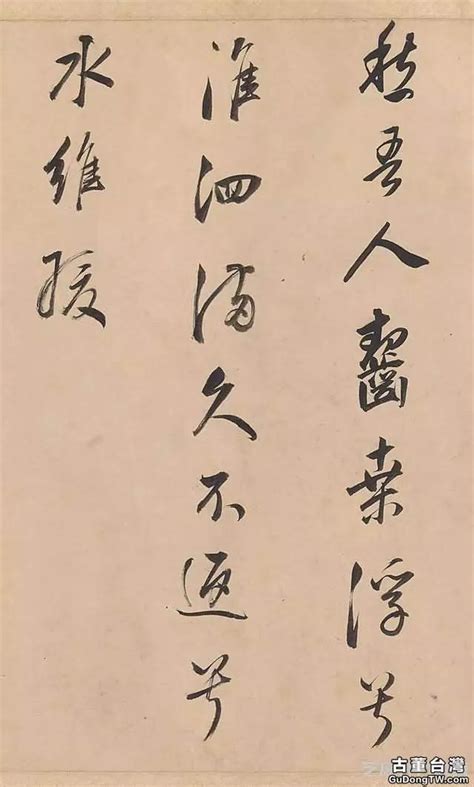 愁吾人齧桑浮兮
淮泗滿久不返兮
水維緩
古董台灣
GuDongTW.com